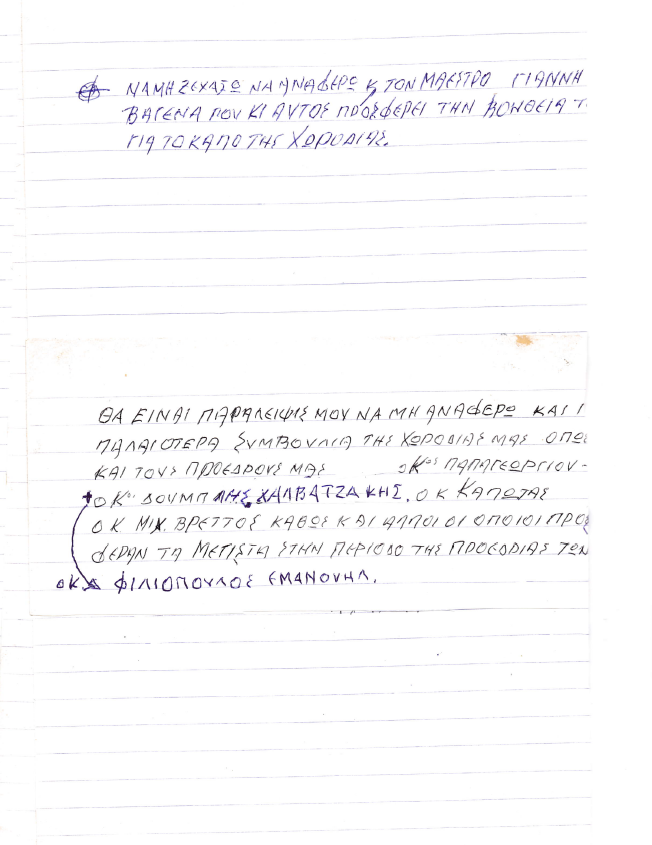 ΝΑ ΜΗ ΞΕΧΑΣΩ ΝΑ ΑΝΑΦΕΡΩ Κ ΤΟΝ ΜΑΕΣΤΡΟ ΓΙΑΝΝΗ
ΒΑΓΕΝΑ ΠΟΥ ΚΙ ΑΥΤΟΣ ΠΡΟΣΦΕΡΕΙ ΤΗΝ ΒΟΗΘΕΙΑ Τ
ΓΙΑ ΤΟ ΚΑΠΟ ΤΗΣ ΧΩΡΟΔΙΑΣ.
ΘΑ ΕΙΝΑΙ ΠΑΡΑΛΕΙΨΙΣ ΜΟΥ ΝΑ ΜΗ ΑΝΑΦΕΡΩ ΚΑΙ
ΠΑΛΑΙΟΤΕΡΑ ΣΥΜΒΟΥΛΙΑ ΤΗΣ ΧΩΡΟΔΙΑΣ ΜΑΣ ΟΠΩ
ΚΑΙ ΤΟΥΣ ΠΡΟΕΔΡΟΥΣ ΜΑΣ Ο Κος ΠΑΠΑΓΕΩΡΓΙΟΥ -
Ο Κος ΔΟΥΜΠ ΧΑΛΒΑΤΖΑΚΗΣ. Ο Κ ΚΑΠΩΤΑΣ
Ο Κ ΜΙΧ. ΒΡΕΤΤΟΣ ΚΑΘΩΣ ΚΑΙ ΑΛΛΟΙ ΟΙ ΟΠΟΙΟΙ ΠΡΟΣ
ΦΕΡΑΝ ΤΑ ΜΕΓΙΣΤΑ ΣΤΗΝ ΠΕΡΙΟΔΟ ΤΗΣ ΠΡΟΕΔΡΙΑΣ ΤΩΝ
Ο Κ ΦΙΛΙΟΠΟΥΛΟΣ ΕΜΑΝΟΥΗΛ.